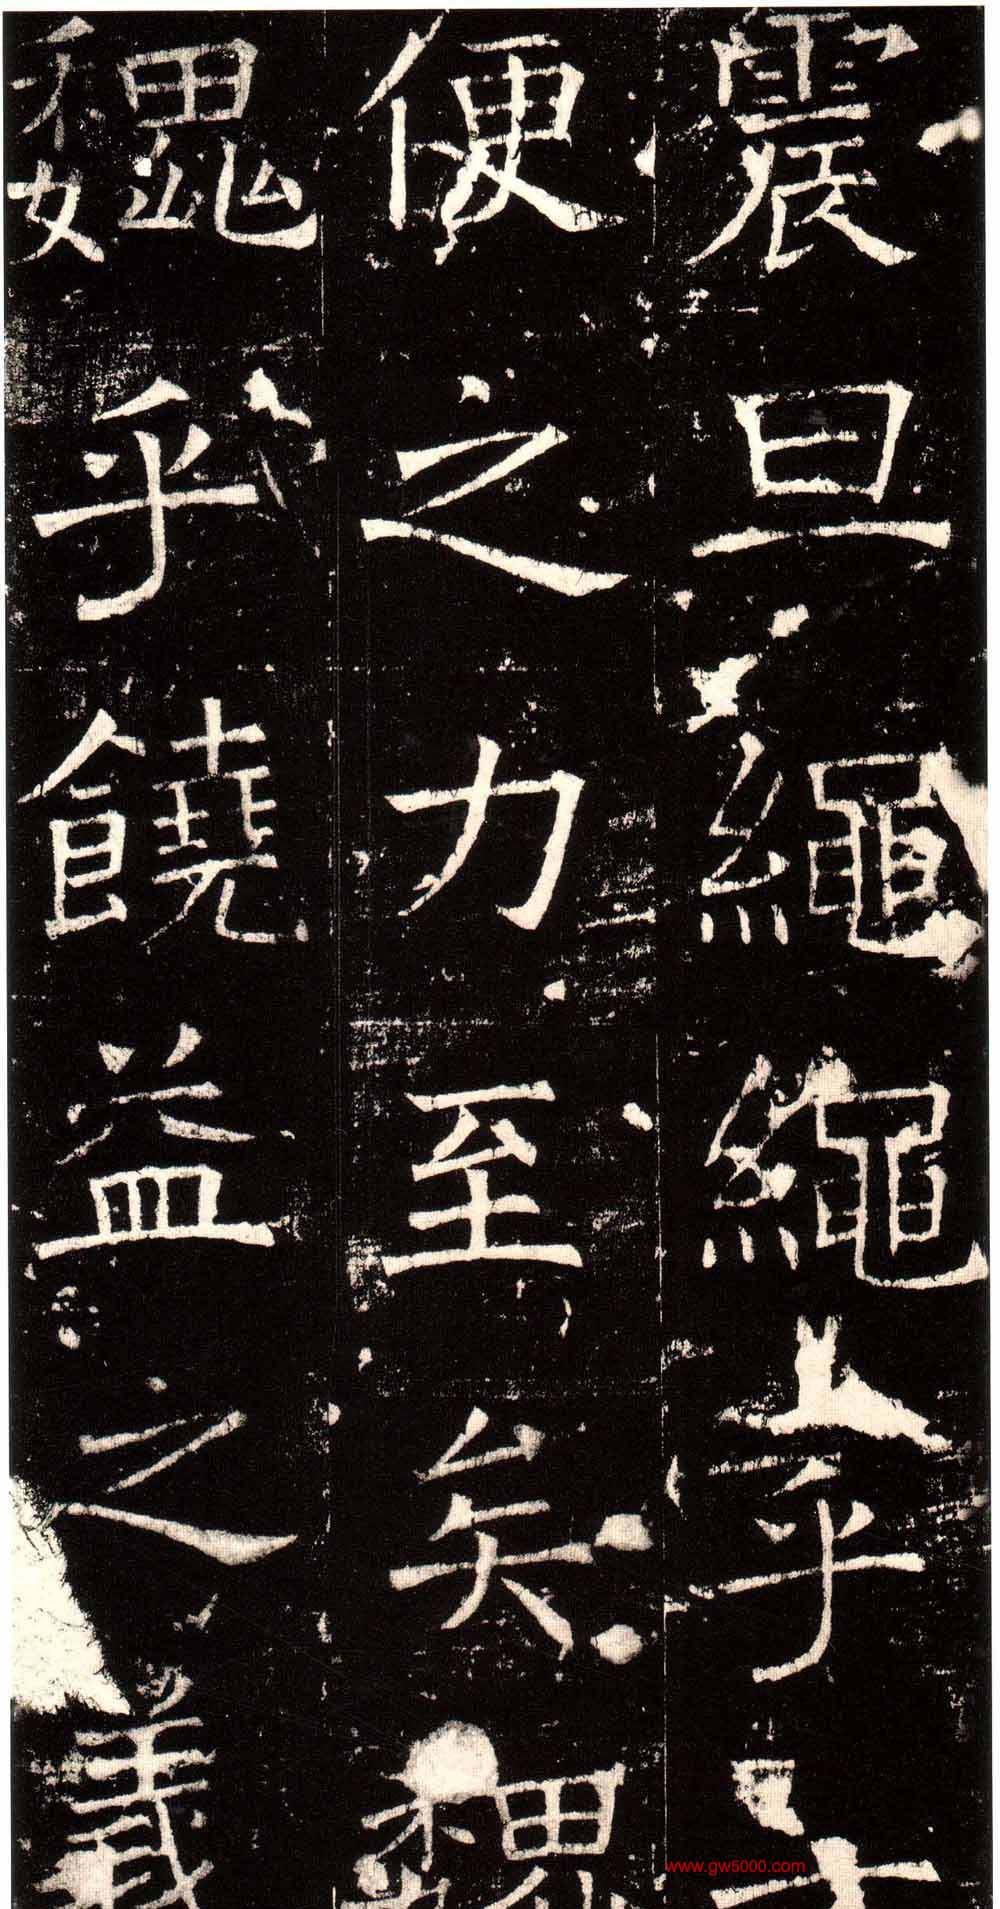 震旦繩繩乎方
便之力至矣巍
巍乎饒益之義
www.gw5000.com